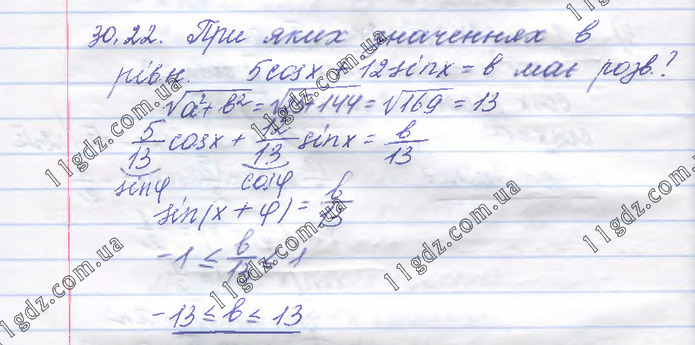 30.22. При яких значеннях в
рівн. 5cosx + 12sinx = в має розв.?
√a²+в² = √25+144 = √169 = 13
5/13 cosx + 12/13 sinx = в/13
sinφ cosφ
sin(x + φ) = в/13
-1 ≤ в/13 ≤ 1
-13 ≤ в ≤ 13
11gdz.com.ua
11gdz.com.ua
11gdz.com.ua
11gdz.com.ua
11gdz.com.ua
11gdz.com.ua
11gdz.com.ua